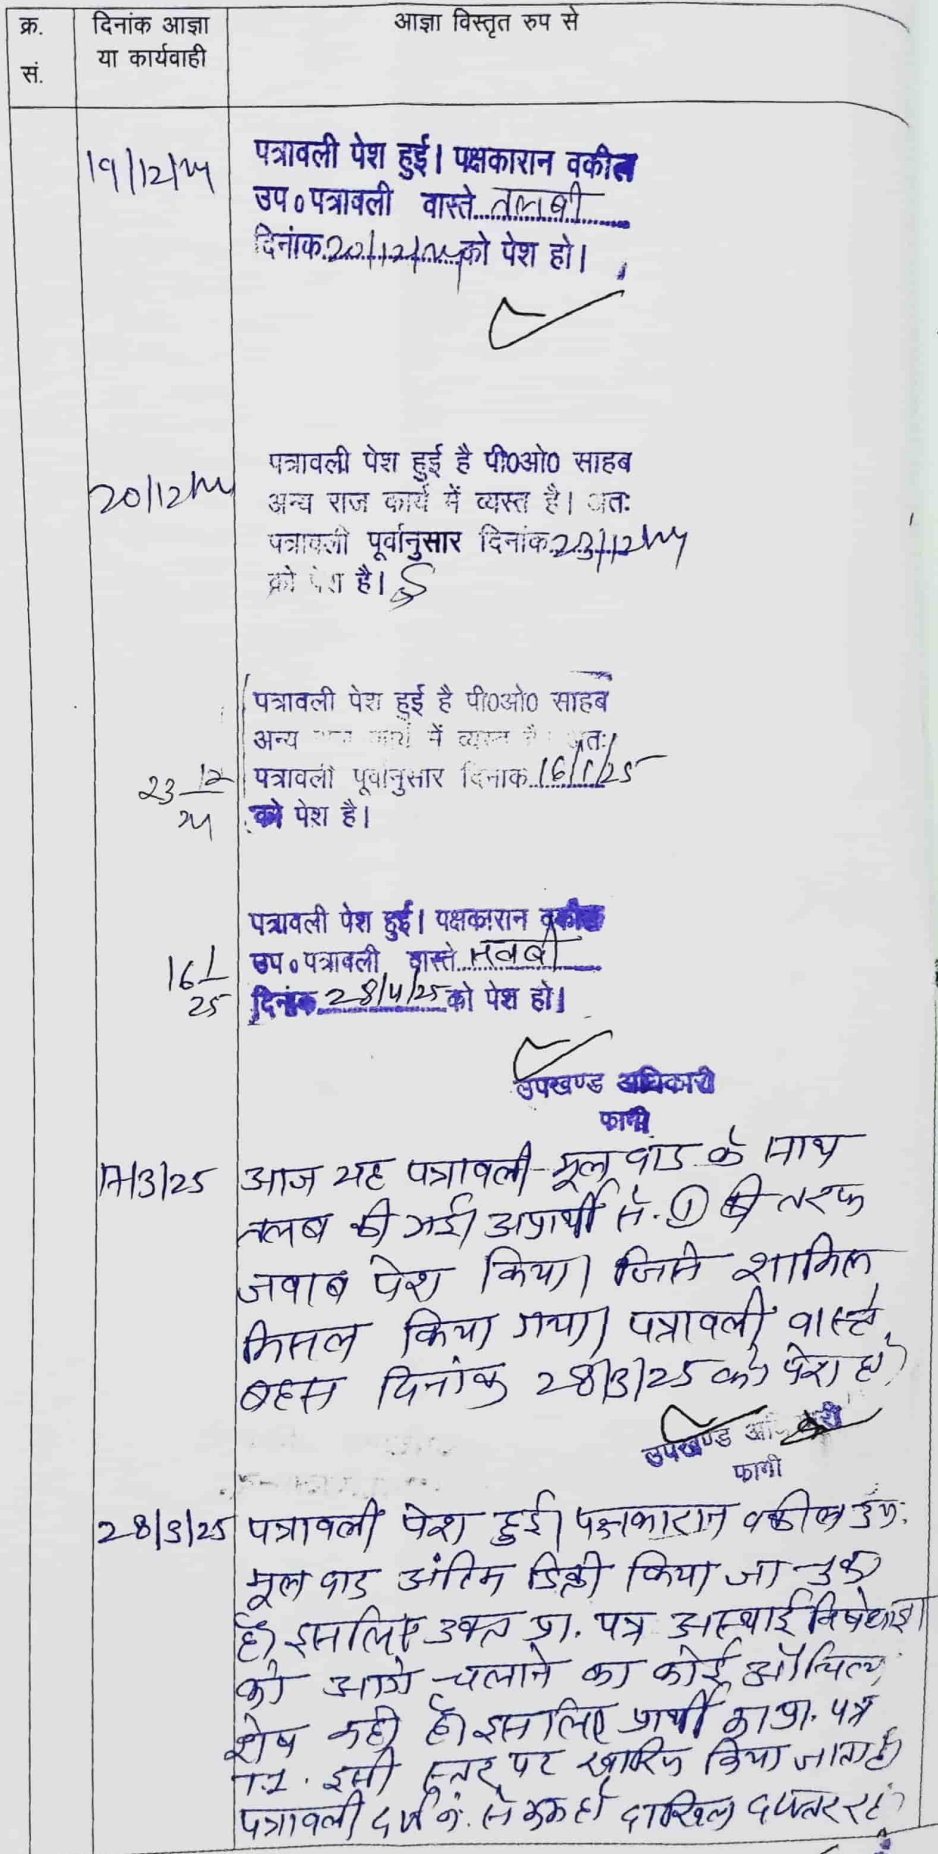 क्र. सं.
दिनांक आज्ञा या कार्यवाही
आज्ञा विस्तृत रुप से
19/12/24
पत्रावली पेश हुई। पक्षकारान वकील
उप० पत्रावली वास्ते तलबी
दिनांक 20/12/24 को पेश हो।
20/12/24
पत्रावली पेश हुई है पी0ओ0 साहब
अन्य राज कार्य में व्यस्त है। अतः
पत्रावली पूर्वानुसार दिनांक 23/12/24
को पेश है।
23 12/24
पत्रावली पेश हुई है पी0ओ0 साहब
अन्य राज कार्य में व्यस्त है। अतः
पत्रावली पूर्वानुसार दिनाक 16/1/25
को पेश है।
16 1/25
पत्रावली पेश हुई। पक्षकारान वकील
उप० पत्रावली वास्ते तलबी
दिनांक 28/4/25 को पेश हो।
उपखण्ड अधिकारी
फागी
17/3/25
आज यह पत्रावली मूल वाद के साथ
तलब की गई। अप्रार्थी सं. 1 की तरफ
जवाब पेश किया। जिसे शामिल
मिसल किया गया। पत्रावली वास्ते
बहस दिनांक 28/3/25 को पेश हो।
उपखण्ड अधिकारी
फागी
28/3/25
पत्रावली पेश हुई। पक्षकारान वकील उप.
मूल वाद अंतिम डिक्री किया जा चुका
है। इसलिए उक्त प्रा. पत्र अस्थाई निषेधाज्ञा
को आगे चलाने का कोई औचित्य
शेष नही है। इसलिए प्रार्थी का प्रा. पत्र
T.I. इसी स्तर पर खारिज किया जाता है।
पत्रावली दर्ज नं. से कम हो दाखिल दफ्तर रहे